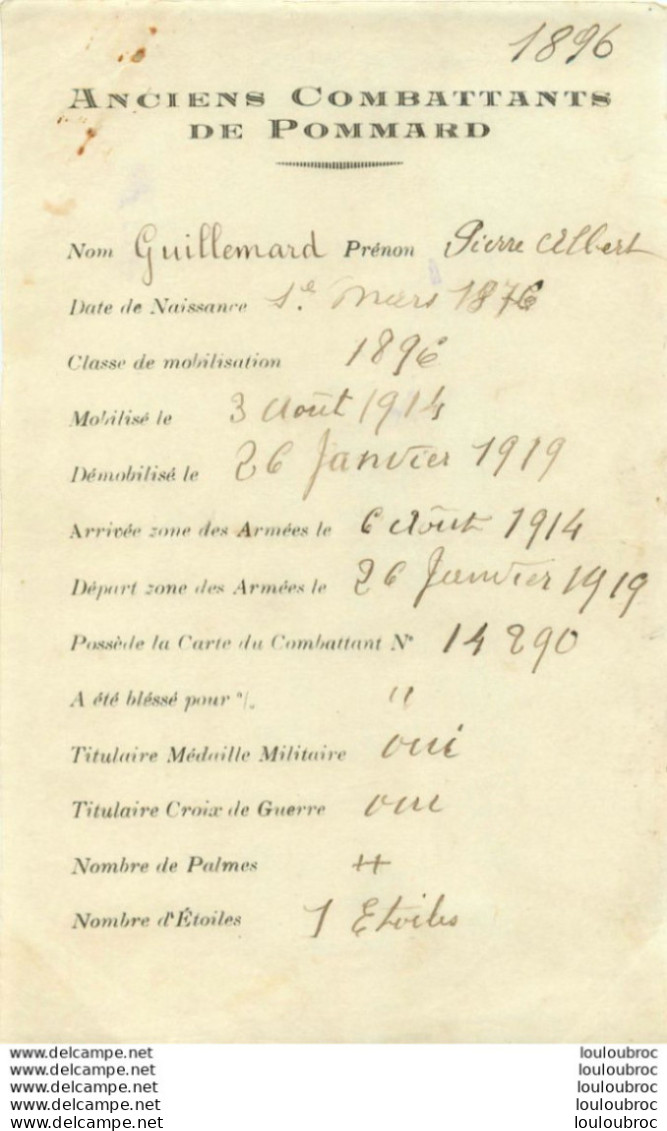 1896
ANCIENS COMBATTANTS
DE POMMARD
Nom Guillemard Prénon Pierre Albert
Date de Naissance 1e Mars 1876
Classe de mobilisation 1896
Mobilisé le 3 Août 1914
Démobilisé le 26 Janvier 1919
Arrivée zone des Armées le 6 Août 1914
Départ zone des Armées le 26 Janvier 1919
Possède la Carte du Combattant N° 14290
A été bléssé pour % "
Titulaire Médaille Militaire oui
Titulaire Croix de Guerre oui
Nombre de Palmes
Nombre d'Étoiles 1 Etoiles
www.delcampe.net louloubroc
www.delcampe.net louloubroc
www.delcampe.net louloubroc
www.delcampe.net louloubroc
www.delcampe.net louloubroc